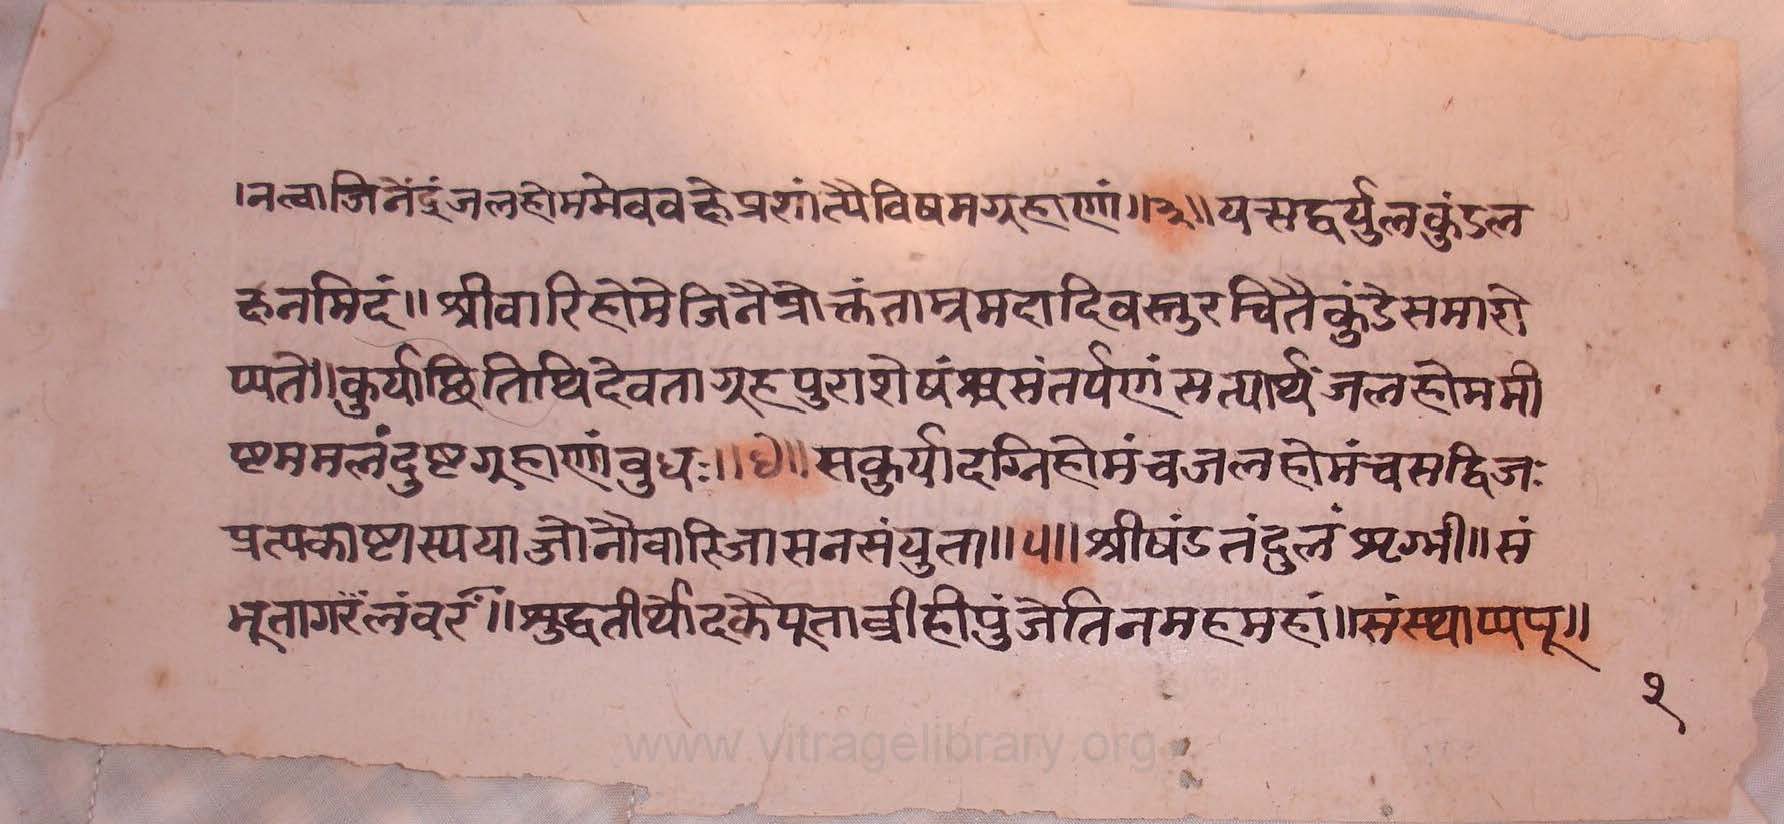 ।नत्वाजिनेंद्रंजलहोममेववक्ष्येप्रशांत्यैविषमग्रहाणां॥३॥यत्सद्वर्युलकुंडल
क्षनमिदं॥श्रीवारिहोमेजिनैप्रोक्तंताम्रमदादिवस्तुरचितैकुंडेसमारो
प्यते॥कुर्याच्छितिथिदेवताग्रहपुराशेषंश्चसंतर्पणंसत्यार्थंजलहोममी
ष्टममलंदुष्टग्रहाणांबुधः॥४॥सकुर्यादग्निहोमंचजलहोमंचसद्विजः
प्रत्यकाष्टास्ययाजोनौवारिजासनसंयुता॥५॥श्रीषंडतंदुलंऋग्भी॥सं
भूतागरैलंवरं॥श्रुद्धतीर्थोदकैपूताव्रीहीपुंजेतिनमहमहां॥संस्थाप्यपू॥
२
www.vitragelibrary.org